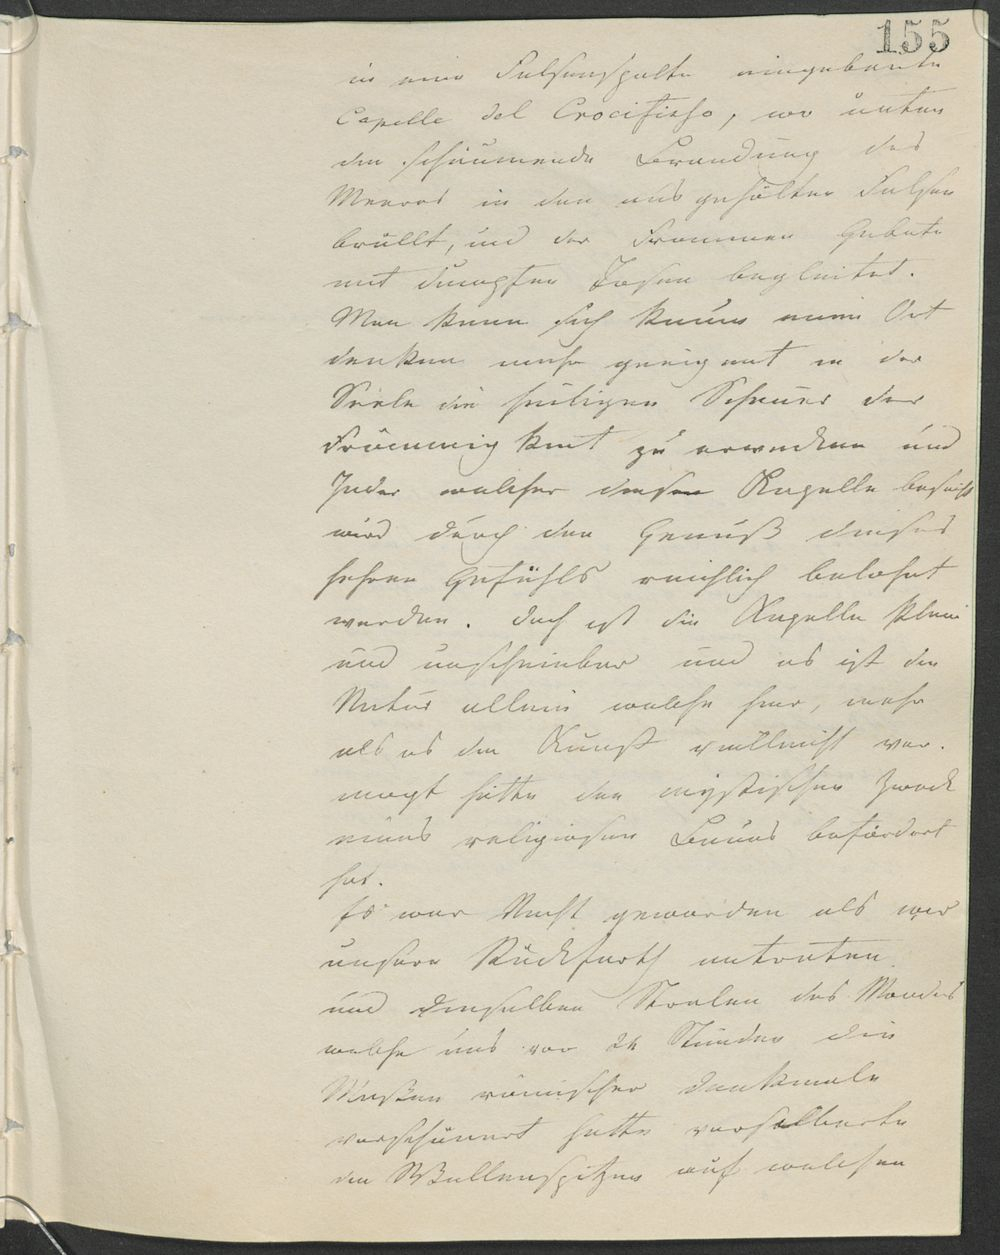 155
in eine Felsenspalte eingebaute
Capelle del Crocifisso, wo unten
die schäumende Brandung des
Meeres in den ausgehölten Felsen
brüllt, und der Frommen Gebete
mit dumpfen Tosen begleitet.
Man kann sich kaum einen Ort
denken mehr geeignet in der
Seele die heiligen Schauer der
Frömmigkeit zu erwecken und
Jeder welcher diese Kapelle besucht
wird durch den Genuß dieses
hehren Gefühls reichlich belohnt
werden. Doch ist die Kapelle klein
und unscheinbar und es ist die
Natur allein welche hier, mehr
als es die Kunst vielleicht ver-
mogt hätte den mystischen Zweck
eines religiosen Baues befördert
hat.
Es war Nacht geworden als wir
unsere Rückfarth antraten
und dieselben Stralen des Mondes
welche uns vor 24 Stunden die
Maßen römischer Denkmale
verschönert hatte versilberte
die Wellenspitzen auf welchen